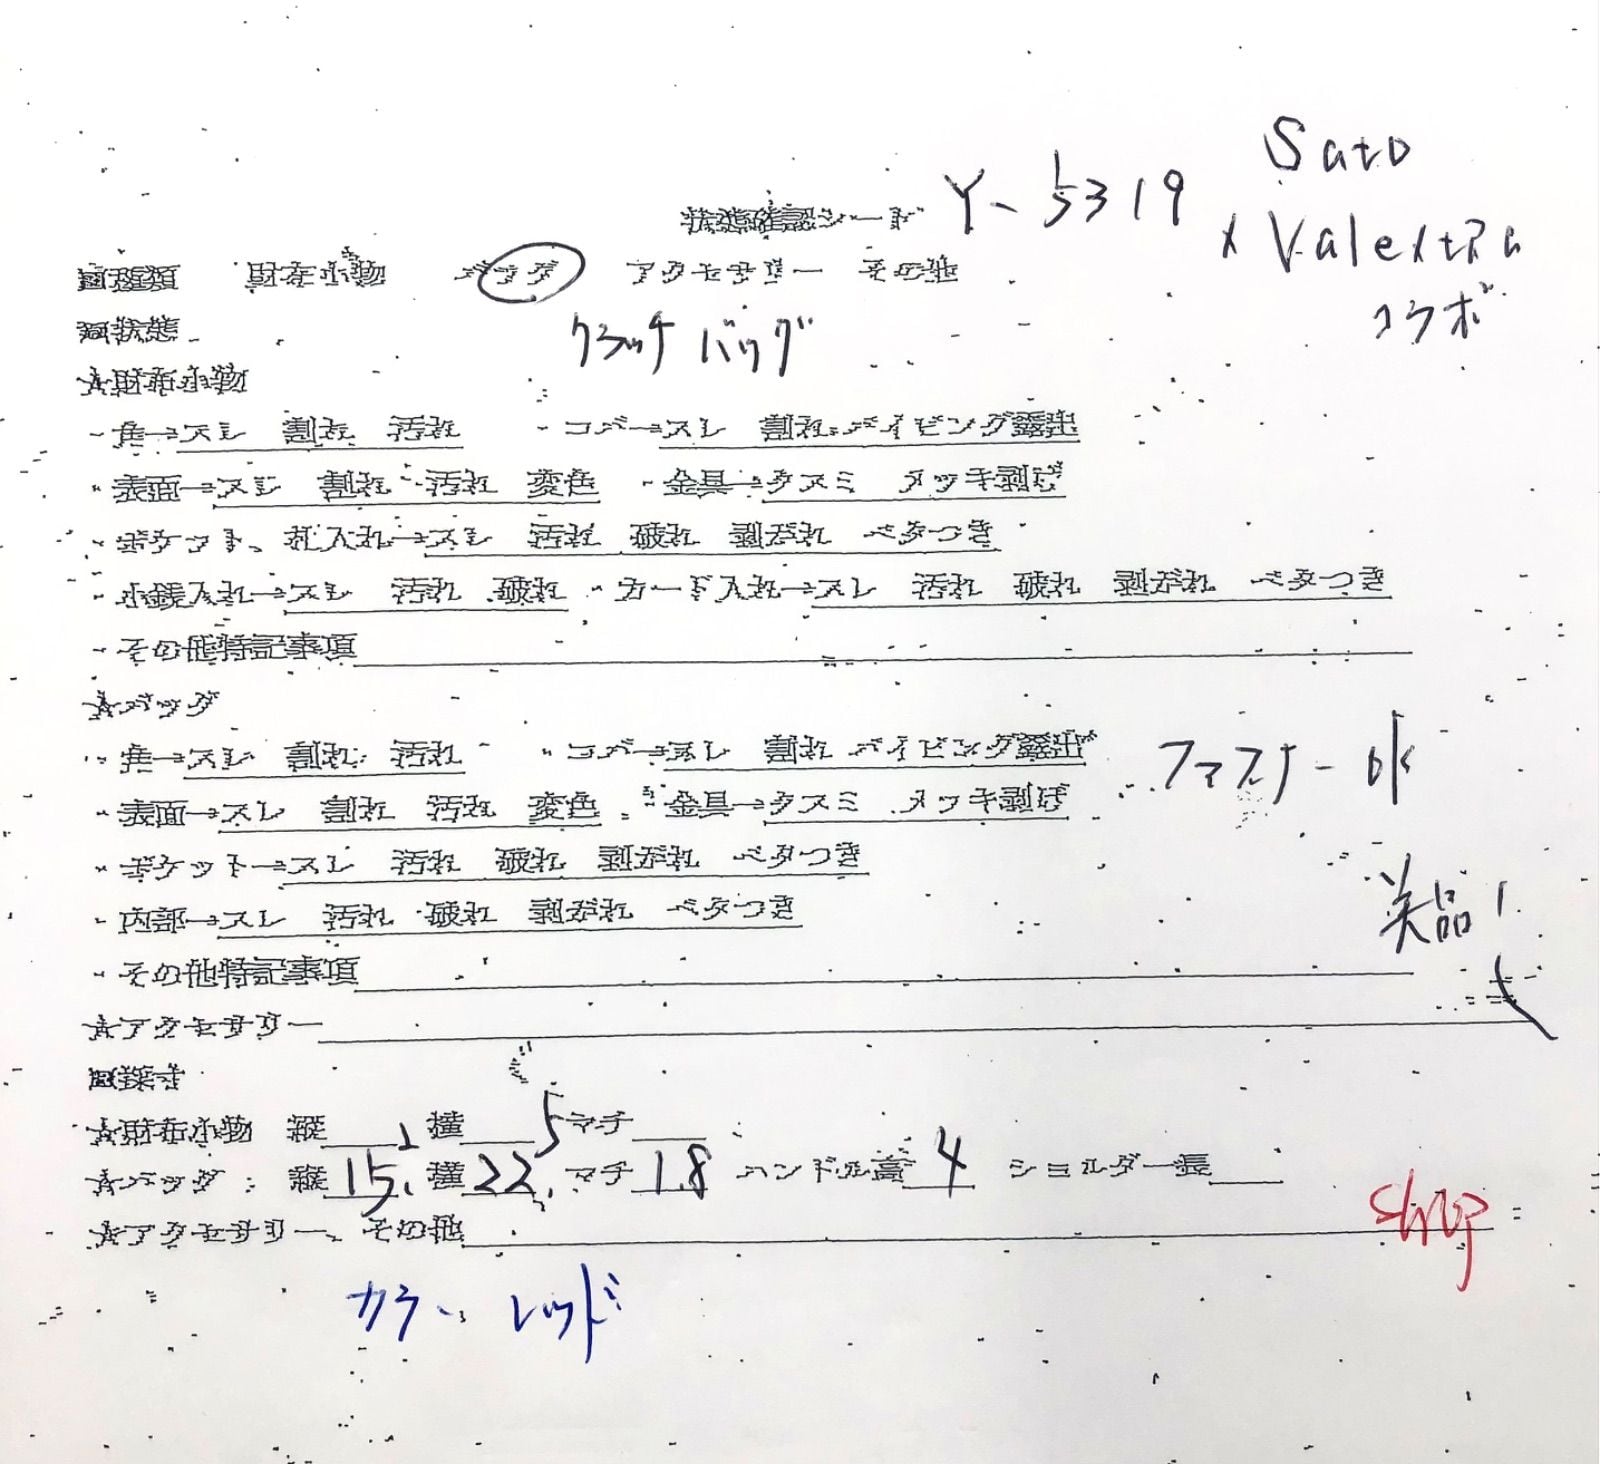 Sato
状態確認シート Y-5319
× Valextra
■種類 財布小物 バッグ アクセサリー その他
コラボ
■状態
クラッチバッグ
★財布小物
・角→スレ 割れ 汚れ ・コバ→スレ 割れ パイピング露出
・表面→スレ 割れ 汚れ 変色 ・金具→クスミ メッキ剥げ
・ポケット、札入れ→スレ 汚れ 破れ 剥がれ ベタつき
・小銭入れ→スレ 汚れ 破れ ・カード入れ→スレ 汚れ 破れ 剥がれ ベタつき
・その他特記事項
★バッグ
・角→スレ 割れ 汚れ ・コバ→スレ 割れ パイピング露出
ファスナー ok
・表面→スレ 割れ 汚れ 変色 ・金具→クスミ メッキ剥げ
・ポケット→スレ 汚れ 破れ 剥がれ ベタつき
・内部→スレ 汚れ 破れ 剥がれ ベタつき
美品
・その他特記事項
★アクセサリー
■採寸
★財布小物 縦 横 マチ
★バッグ: 縦15. 横22.5 マチ1.8 ハンドル高4 ショルダー長
★アクセサリー、その他
shop
カラー、レッド